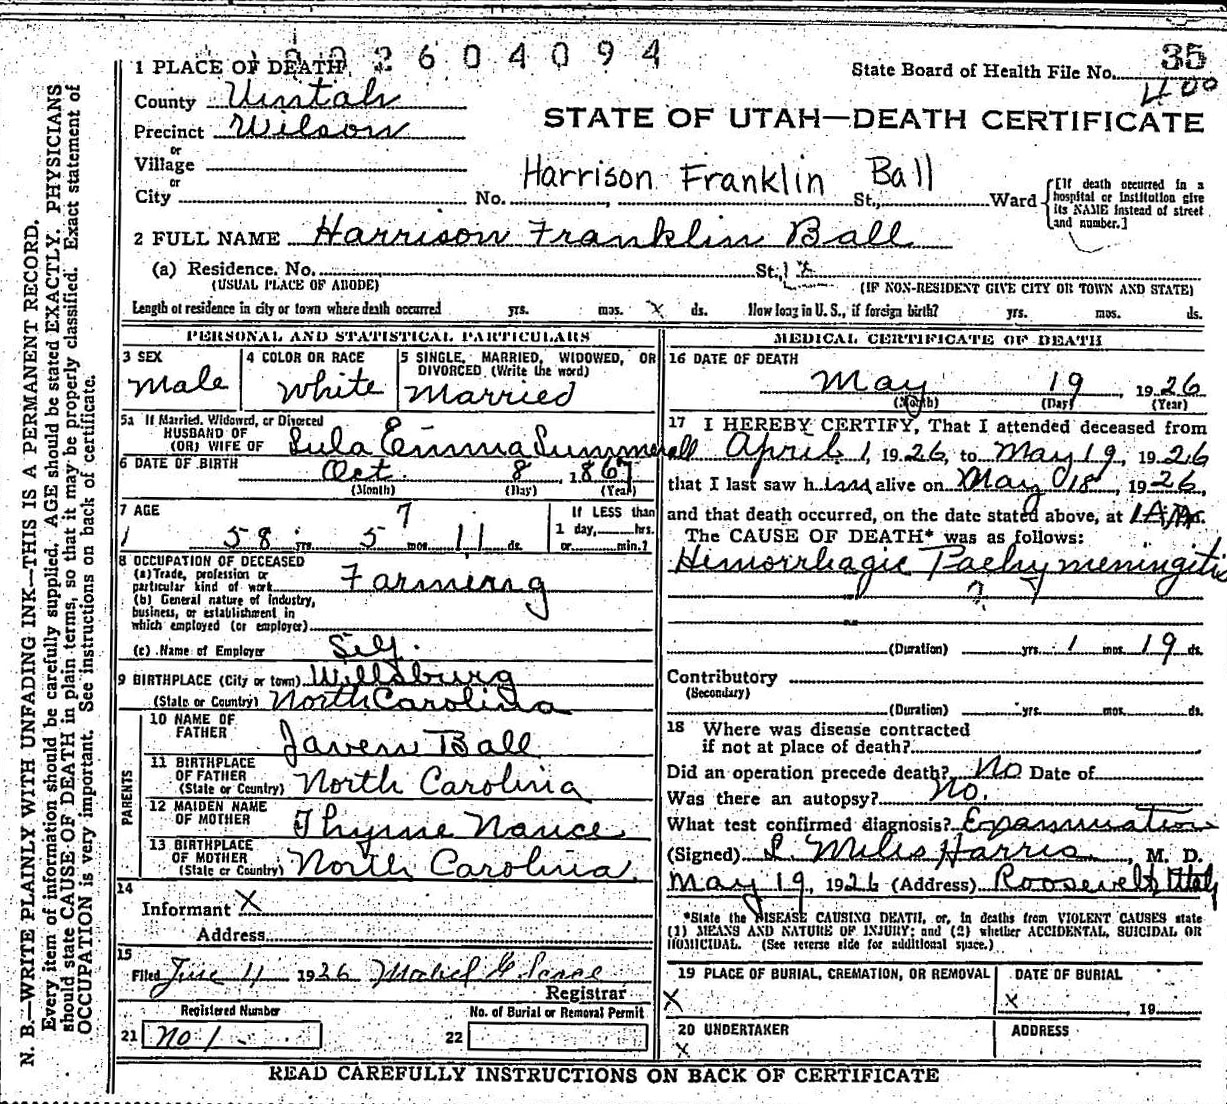 2 6 0 4 0 9 4
1 PLACE OF DEATH
State Board of Health File No. 35
400
County Uintah
STATE OF UTAH—DEATH CERTIFICATE
Precinct Wilson
or
Village
or
City
Harrison Franklin Ball
No. St., Ward
[If death occurred in a hospital or institution give its NAME instead of street and number.]
2 FULL NAME Harrison Franklin Ball
(a) Residence. No. St., x
(USUAL PLACE OF ABODE) (IF NON-RESIDENT GIVE CITY OR TOWN AND STATE)
Length of residence in city or town where death occurred yrs. mos. x ds. How long in U. S., if foreign birth? yrs. mos. ds.
PERSONAL AND STATISTICAL PARTICULARS
3 SEX
Male
4 COLOR OR RACE
White
5 SINGLE, MARRIED, WIDOWED, OR DIVORCED (Write the word)
Married
5a If Married, Widowed, or Divorced
HUSBAND OF
(OR) WIFE OF Lula Emma Summerall
6 DATE OF BIRTH
Oct. 8, 1867
(Month) (Day) (Year)
7 AGE
7
58 yrs. 5 mos. 11 ds.
If LESS than
1 day, hrs.
or min.?
8 OCCUPATION OF DECEASED
(a) Trade, profession or
particular kind of work Farming
(b) General nature of industry,
business, or establishment in
which employed (or employer)
(c) Name of Employer Self.
9 BIRTHPLACE (City or town) Willsburg
(State or Country) North Carolina
PARENTS
10 NAME OF
FATHER Javern Ball
11 BIRTHPLACE
OF FATHER
(State or Country) North Carolina
12 MAIDEN NAME
OF MOTHER Thyrne Nance
13 BIRTHPLACE
OF MOTHER
(State or Country) North Carolina
14
Informant X
Address
15
Filed June 11 1926
Registrar
Registered Number
21 No 1
No. of Burial or Removal Permit
22
MEDICAL CERTIFICATE OF DEATH
16 DATE OF DEATH
May 19, 1926
(Month) (Day) (Year)
17 I HEREBY CERTIFY, That I attended deceased from
April 1, 1926, to May 19, 1926
that I last saw him alive on May 18, 1926,
and that death occurred, on the date stated above, at 1 A.m.
The CAUSE OF DEATH* was as follows:
Hemorrhagic Pachymeningitis
?
(Duration) yrs. 1 mos. 19 ds.
Contributory
(Secondary)
(Duration) yrs. mos. ds.
18 Where was disease contracted
if not at place of death?
Did an operation precede death? No Date of
Was there an autopsy? No.
What test confirmed diagnosis? Examination
(Signed) L. Miles Harris, M. D.
May 19, 1926 (Address) Roosevelt, Utah
*State the DISEASE CAUSING DEATH, or, in deaths from VIOLENT CAUSES state
(1) MEANS AND NATURE OF INJURY; and (2) whether ACCIDENTAL, SUICIDAL OR
HOMICIDAL. (See reverse side for additional space.)
19 PLACE OF BURIAL, CREMATION, OR REMOVAL
X
DATE OF BURIAL
X , 19
20 UNDERTAKER
X
ADDRESS
READ CAREFULLY INSTRUCTIONS ON BACK OF CERTIFICATE
N. B.—WRITE PLAINLY WITH UNFADING INK—THIS IS A PERMANENT RECORD.
Every item of information should be carefully supplied. AGE should be stated EXACTLY. PHYSICIANS
should state CAUSE OF DEATH in plain terms, so that it may be properly classified. Exact statement of
OCCUPATION is very important. See instructions on back of certificate.